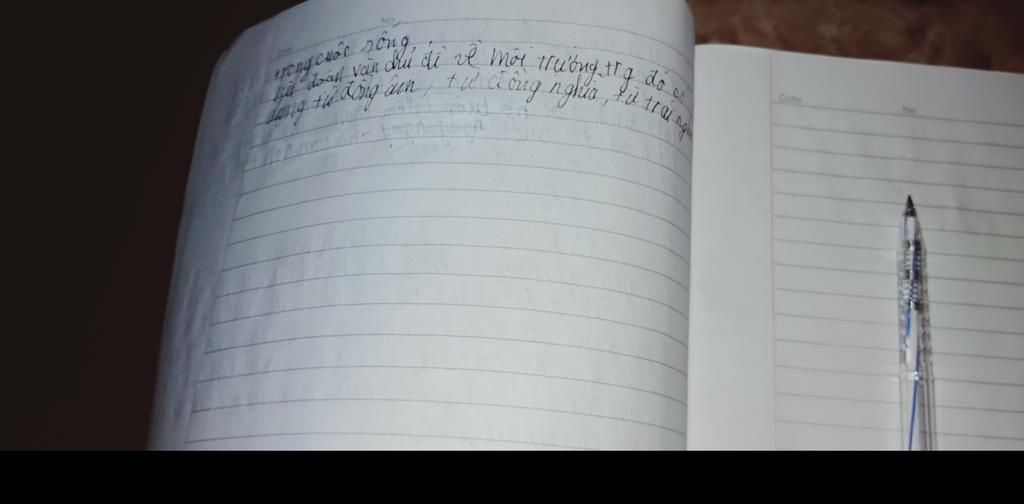 No.
Date
trong cuộc sống
viết đoạn văn chủ đề về môi trường, trg đó có
dụng từ đồng âm, từ đồng nghĩa, từ trái nghĩa
Date
No.